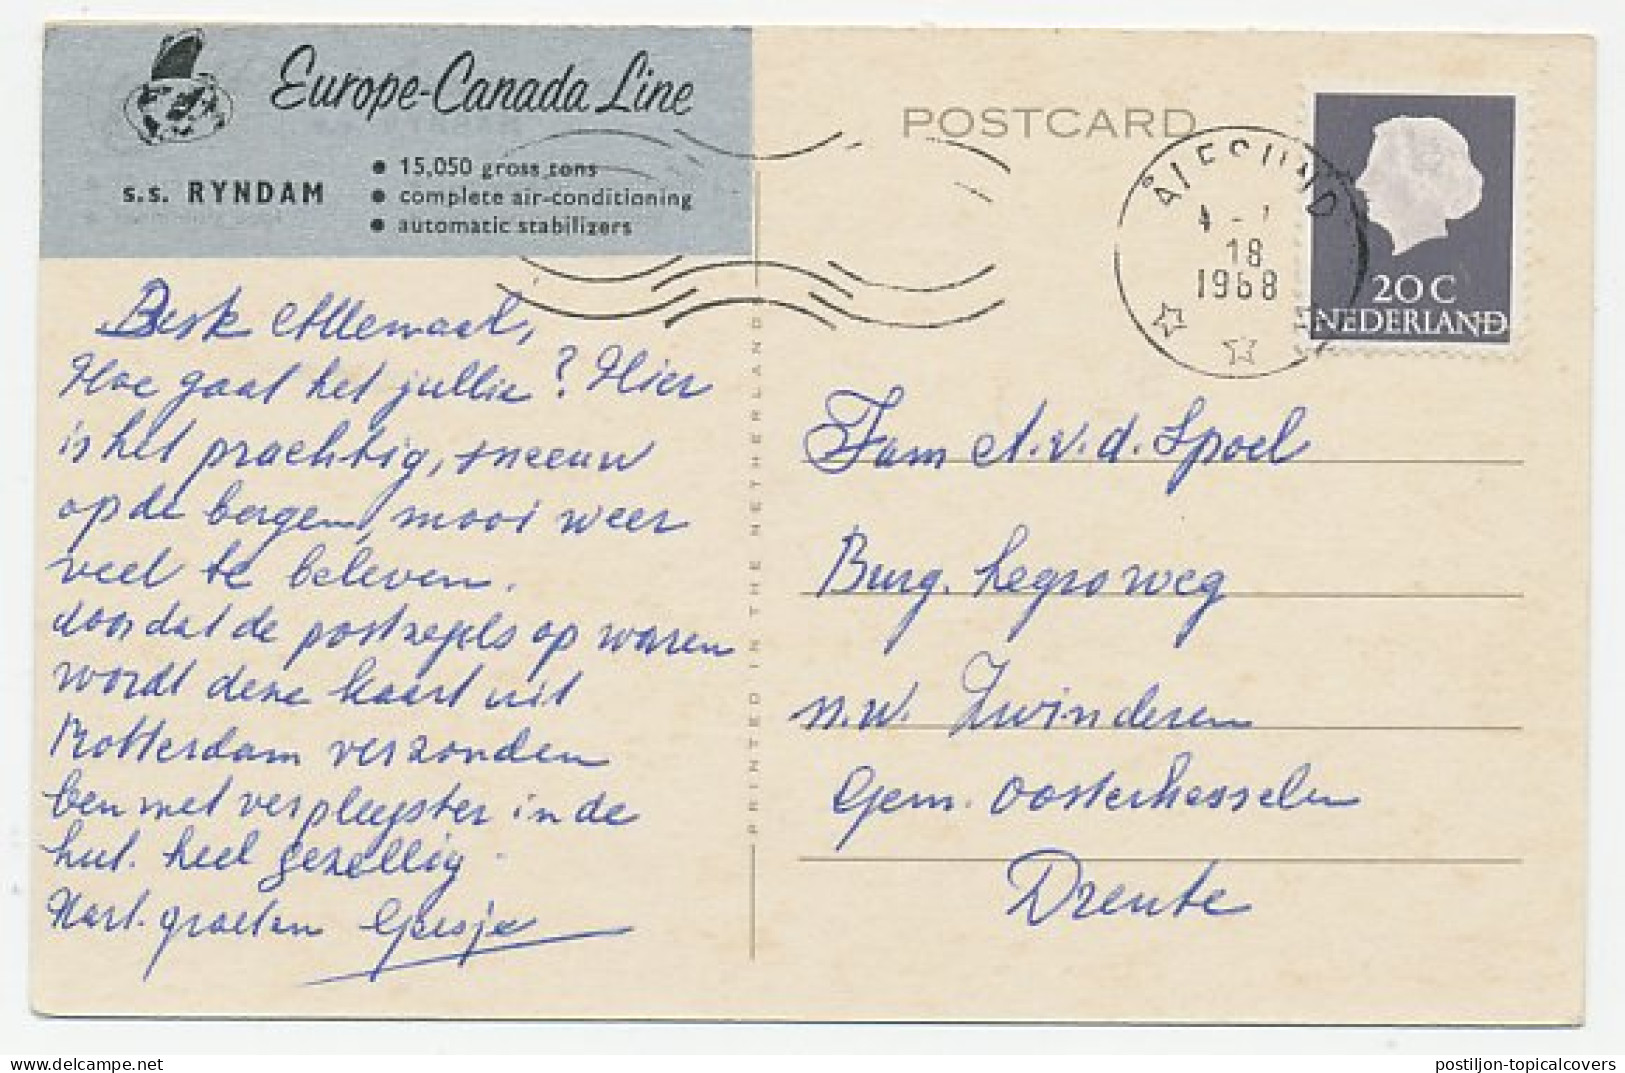 Europe-Canada Line
s.s. RYNDAM
• 15,050 gross tons
• complete air-conditioning
• automatic stabilizers
POSTCARD
ÅLESUND
4 - 7
18
1968
20 C
NEDERLAND
Besk Allemaal,
Hoe gaat het jullie? Hier
is het prachtig, sneeuw
op de bergen, mooi weer
veel te beleven.
doordat de postzegels op waren
wordt deze kaart uit
Rotterdam verzonden
ben met verpleegster in de
hut. heel gezellig.
Hart. groeten Geesje
PRINTED IN THE NETHERLAND
Fam A.v.d. Spoel
Burg. Legroweg
n.w. Zwinderen
Gem. Oosterhesselen
Drente
postiljon-topicalcovers